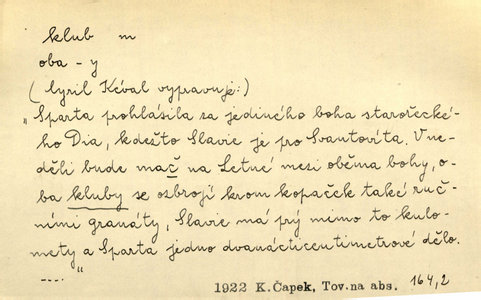 klub m
oba - y
(Cyril Kéval vypravuje:)
„Sparta prohlásila za jediného boha starořecké-
ho Dia, kdežto Slavie je pro Svantovíta. V ne-
děli bude mač na Letné mezi oběma bohy, o-
ba kluby se ozbrojí krom kopaček také ruč-
ními granáty, Slavie má prý mimo to kulo-
mety a Sparta jedno dvanácticentimetrové dělo.
....“
1922 K.Čapek, Tov.na abs. 164,2